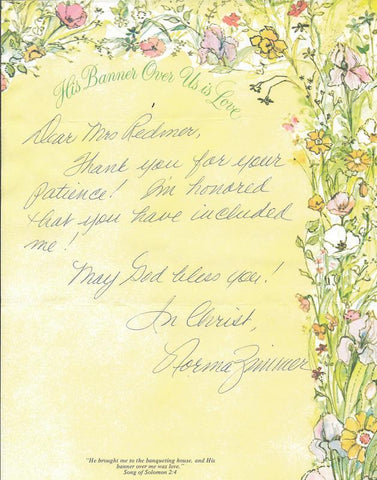 His Banner Over Us is Love
Dear Mrs Redmer,
Thank you for your
patience! I'm honored
that you have included
me!
May God bless you!
In Christ,
Norma Zimmer
"He brought me to the banqueting house, and His
banner over me was love."
Song of Solomon 2:4